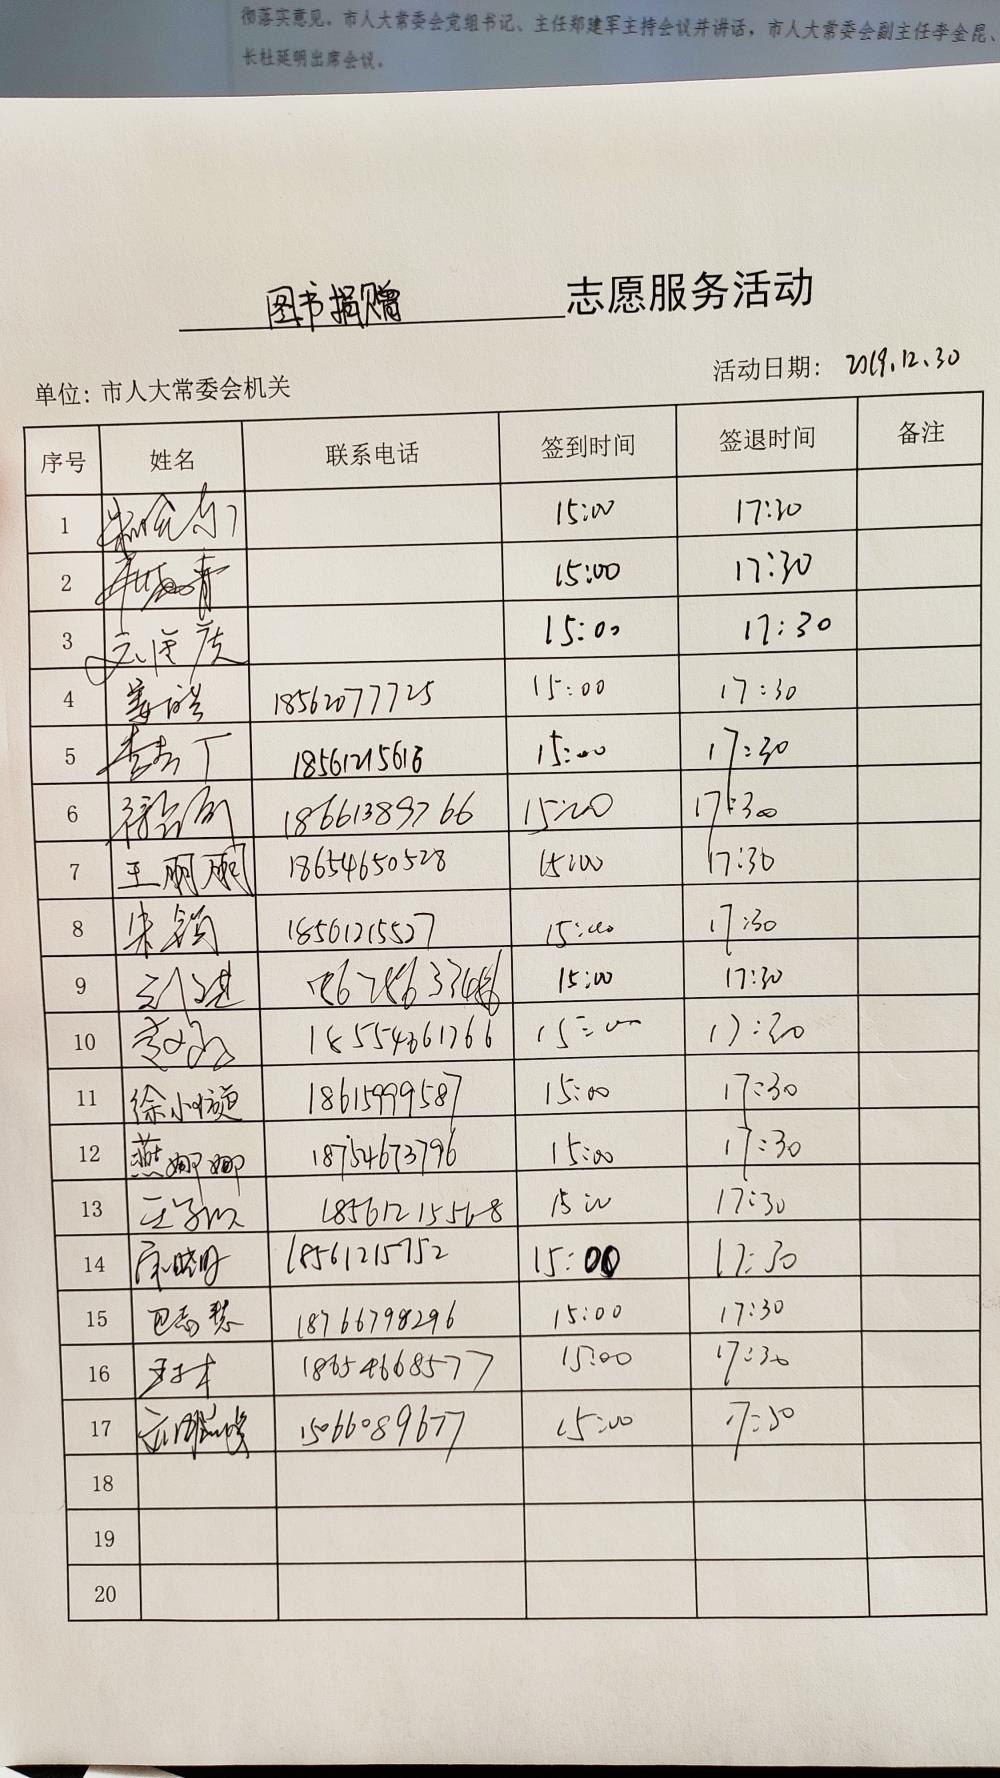 彻落实意见。市人大常委会党组书记、主任郑建军主持会议并讲话，市人大常委会副主任李金昆、
长杜延明出席会议。
图书捐赠 志愿服务活动
单位：市人大常委会机关 活动日期：2019.12.30
序号 姓名 联系电话 签到时间 签退时间 备注
1 15:00 17:30
2 15:00 17:30
3 15:00 17:30
4 姜皓 18562077725 15:00 17:30
5 18561215613 15:00 17:30
6 18661389766 15:00 17:30
7 王丽丽 18654650528 15:00 17:30
8 朱颖 18561215527 15:00 17:30
9 15:00 17:30
10 15:00 17:30
11 徐小旋 18615999587 15:00 17:30
12 燕娜娜 18754673796 15:00 17:30
13 18561215568 15:00 17:30
14 18561215752 15:00 17:30
15 巴志慧 18766798296 15:00 17:30
16 18654668577 15:00 17:30
17 15066089677 15:00 17:30
18
19
20